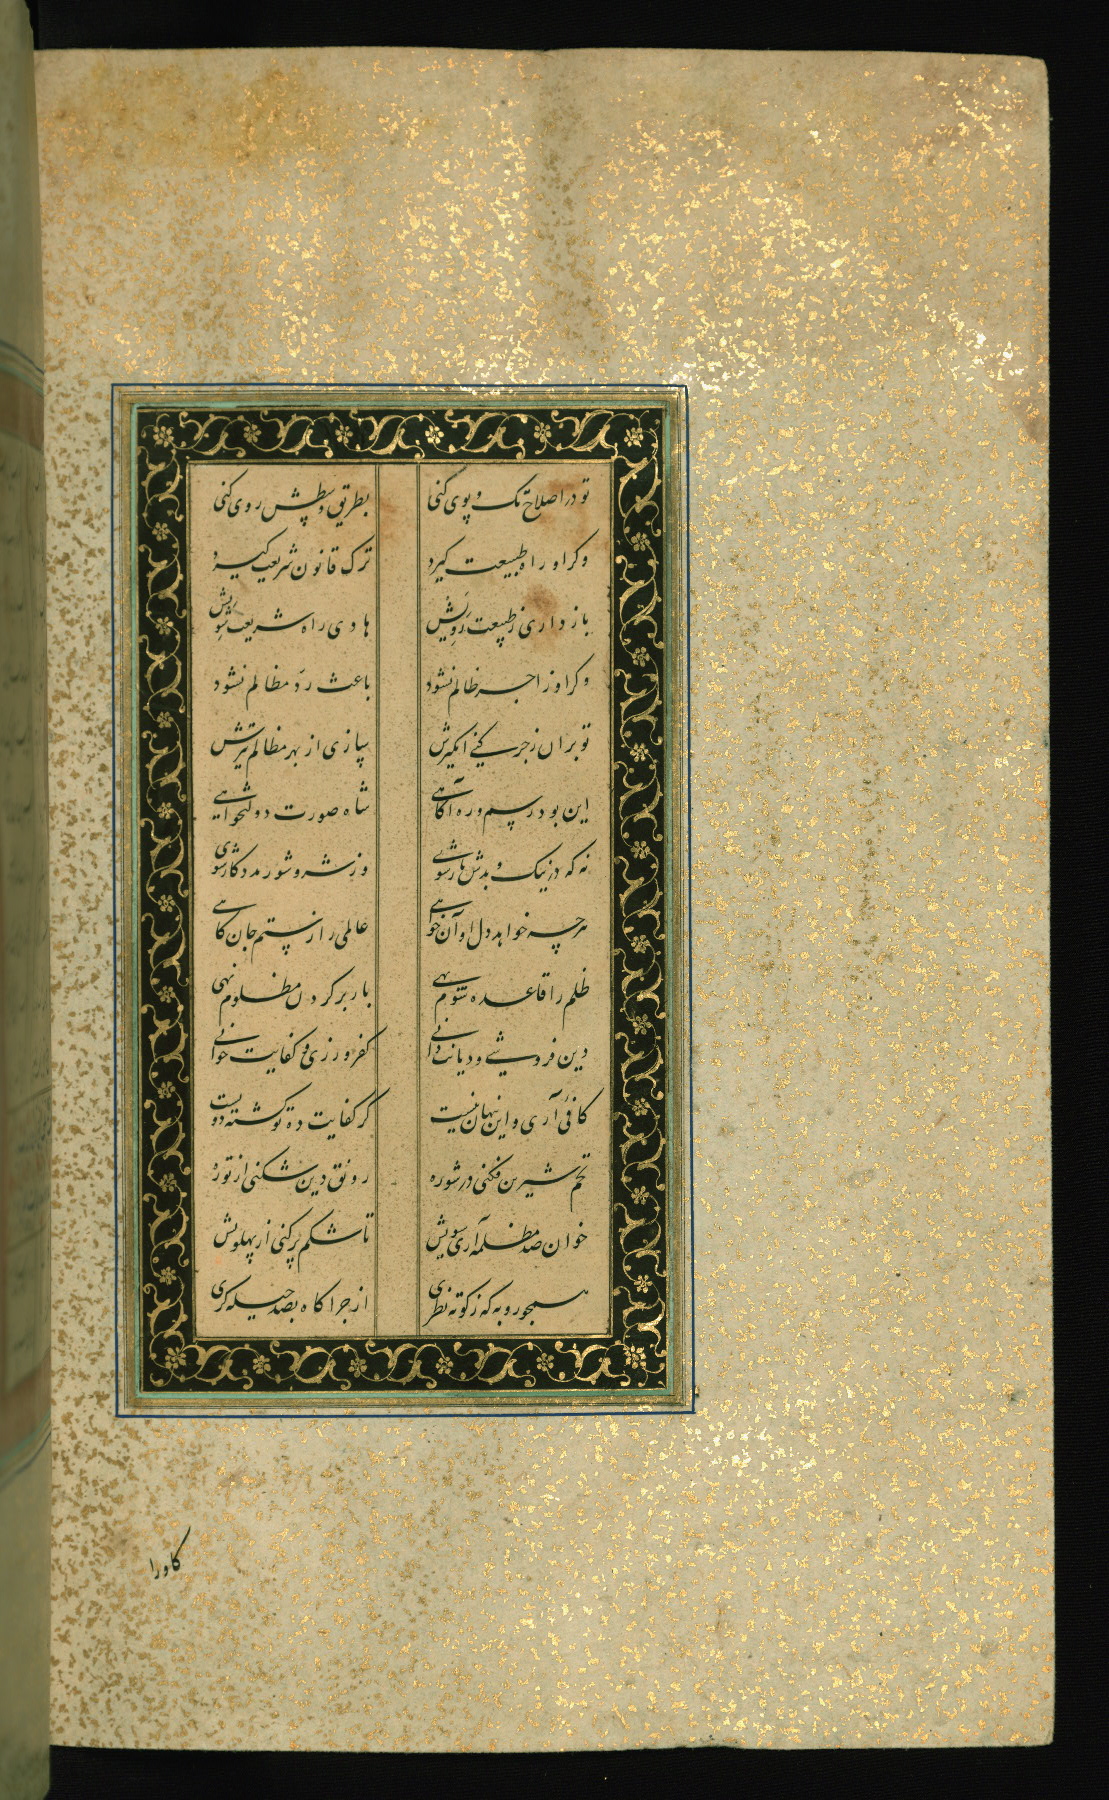 تو در اصلاح تک و پوی کنی بطریق وطپش روی کنی
وکر او راه طبیعت کیرد ترک قانون شریعت کیرد
باز داری ز طبیعت رویش هادی راه شریعت شویش
وکر او زاجر ظالم نشود باعث رد مظالم نشود
تو بران زجر کنی انکیزش سازی از بهر مظالم تیزش
این بود رسم و ره آکاهی شاه صورت دولتخواهی
نه که در نیک و بدش یار شوی وز شر و شور مددکار شوی
هر چه خواهد دل او آن خواهی عالمی را ز ستم جان کاهی
ظلم را قاعده شوم نهی بار بر کردن مظلوم نهی
دین فروشی و دیانت دانی کفر ورزی و کفایت خوانی
کافئ آری و این پنهان نیست کر کفایت ده تو کشته دویست
تخم شیرین فکنی در شوره رونق دین شکنی از توره
خوان صد مظلمه آری سویش تا شکم پر کنی از پهلویش
سبحور وبه که ز کوته نظری از چراکاه بصد حیله کری
کاورا